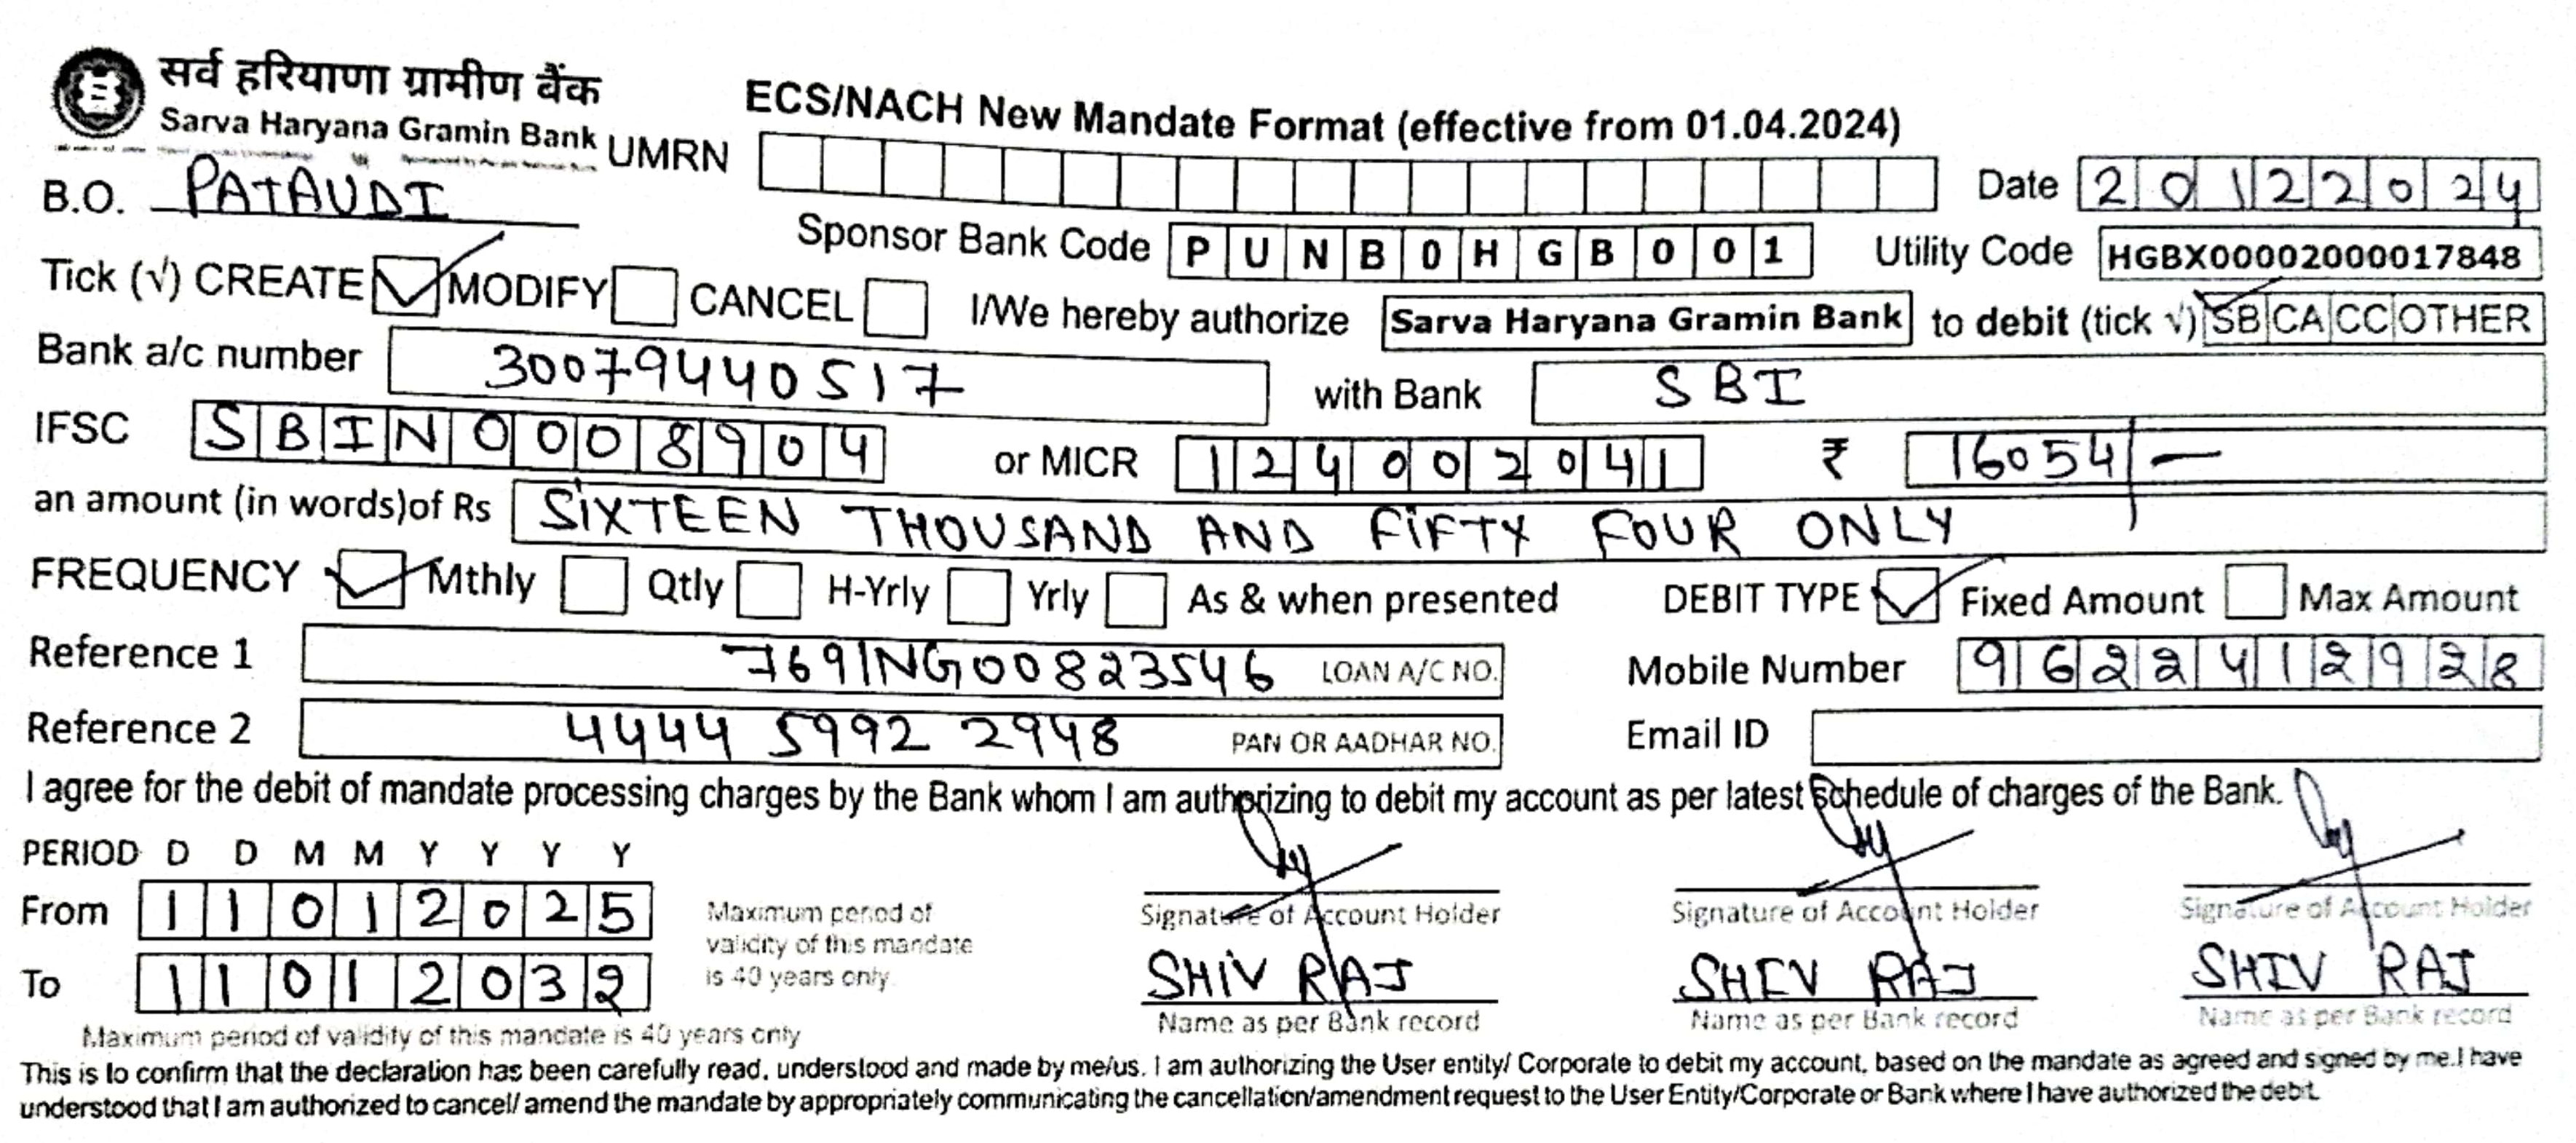 सर्व हरियाणा ग्रामीण बैंक
Sarva Haryana Gramin Bank
ECS/NACH New Mandate Format (effective from 01.04.2024)
UMRN
B.O. PATAUDI
Date 20122024
Sponsor Bank Code PUNB0HGB001 Utility Code HGBX00002000017848
Tick (√) CREATE ✓ MODIFY CANCEL I/We hereby authorize Sarva Haryana Gramin Bank to debit (tick √) SB CA CC OTHER
Bank a/c number 30079440517 with Bank SBI
IFSC SBIN0008904 or MICR 124002041 ₹ 16054/-
an amount (in words)of Rs SIXTEEN THOUSAND AND FIFTY FOUR ONLY
FREQUENCY ✓ Mthly Qtly H-Yrly Yrly As & when presented DEBIT TYPE ✓ Fixed Amount Max Amount
Reference 1 7691NG00823546 LOAN A/C NO. Mobile Number 9622412928
Reference 2 4444 5992 2948 PAN OR AADHAR NO. Email ID
I agree for the debit of mandate processing charges by the Bank whom I am authorizing to debit my account as per latest Schedule of charges of the Bank.
PERIOD D D M M Y Y Y Y
From 11012025
To 11012032
Maximum period of
validity of this mandate
is 40 years only.
Signature of Account Holder Signature of Account Holder Signature of Account Holder
SHIV RAJ SHIV RAJ SHIV RAJ
Name as per Bank record Name as per Bank record Name as per Bank record
Maximum period of validity of this mandate is 40 years only
This is to confirm that the declaration has been carefully read, understood and made by me/us. I am authorizing the User entity/ Corporate to debit my account, based on the mandate as agreed and signed by me.I have
understood that I am authorized to cancel/ amend the mandate by appropriately communicating the cancellation/amendment request to the User Entity/Corporate or Bank where I have authorized the debit.